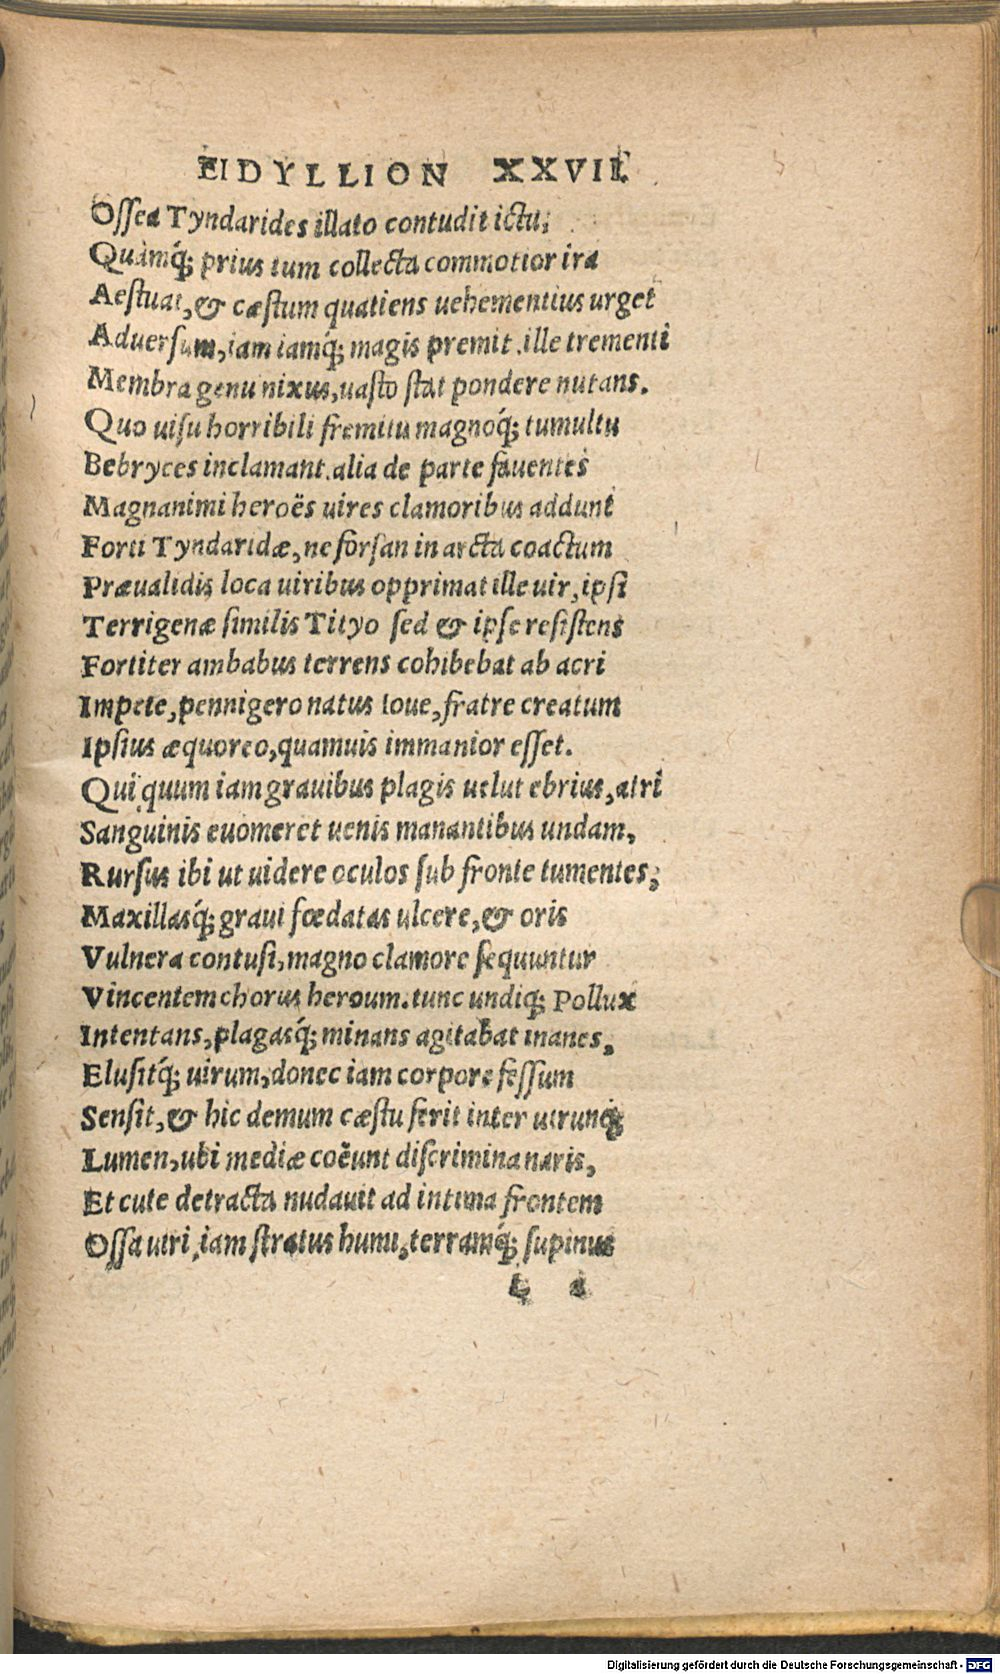 EIDYLLION XXVII.
Ossea Tyndarides illato contudit ictu;
Quàmq́; prius tum collecta commotior ira
Aestuat, & cæstum quatiens uehementius urget
Aduersum, iam iamq́; magis premit. ille trementi
Membra genu nixus, uasto stat pondere nutans.
Quo uisu horribili fremitu magnoq́; tumultu
Bebryces inclamant. alia de parte fauentes
Magnanimi heroës uires clamoribus addunt
Forti Tyndaridæ, ne forsan in arcta coactum
Præualidis loca uiribus opprimat ille uir, ipsi
Terrigenæ similis Tityo sed & ipse resistens
Fortiter ambabus terrens cohibebat ab acri
Impete, pennigero natus Ioue, fratre creatum
Ipsius æquoreo, quamuis immanior esset.
Qui quum iam grauibus plagis uelut ebrius, atri
Sanguinis euomeret uenis manantibus undam,
Rursus ibi ut uidere oculos sub fronte tumentes;
Maxillasq́; graui fœdatas ulcere, & oris
Vulnera contusi, magno clamore sequuntur
Vincentem chorus heroum. tunc undiq; Pollux
Intentans, plagasq́; minans agitabat inanes,
Elusitq́; uirum, donec iam corpore fessum
Sensit, & hic demum cæstu ferit inter utrunq;
Lumen, ubi mediæ coëunt discrimina naris,
Et cute detracta nudauit ad intima frontem
Ossa utri, iam stratus humu, terramq́; supinus
L
Digitalisierung gefördert durch die Deutsche Forschungsgemeinschaft - DFG